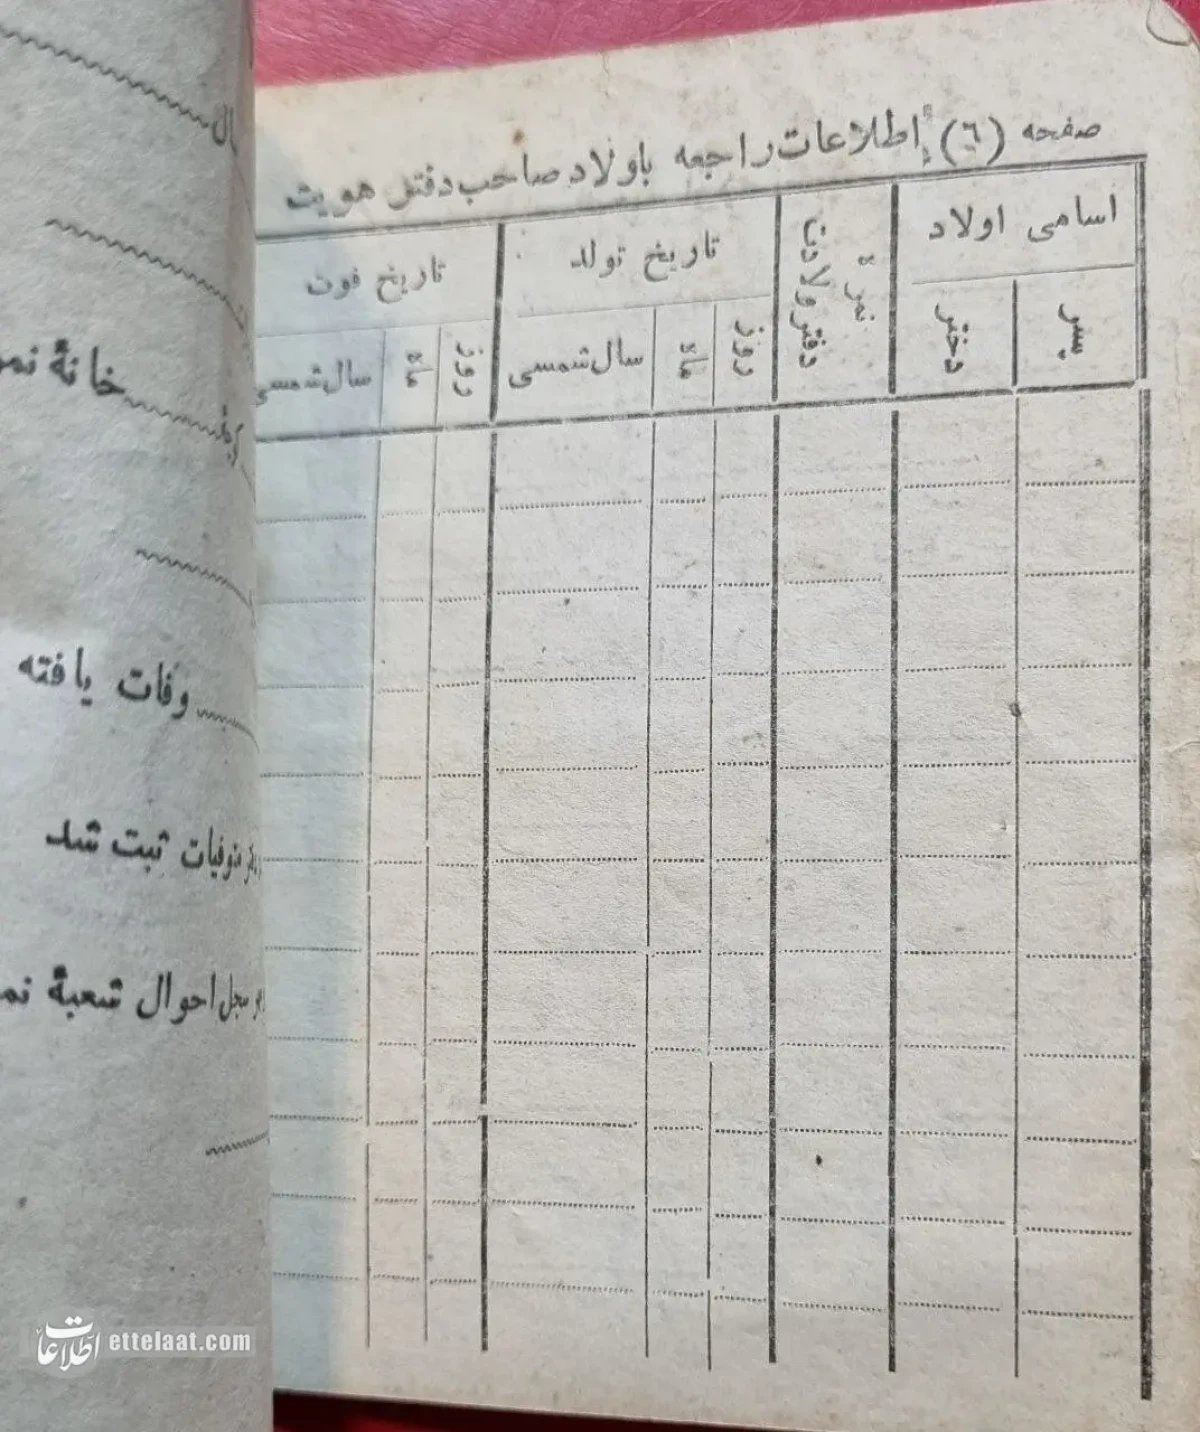 صفحه (٦) إطلاعات راجعه باولاد صاحب دفتر هویت
اسامی اولاد
پسر
دختر
نمرهٔ دفتر ولادت
تاریخ تولد
روز
ماه
سال شمسی
تاریخ فوت
روز
ماه
سال شمسی
خانهٔ
وفات یافته
متوفیات ثبت شد
سجل احوال شعبهٔ
اطلاعات ettelaat.com